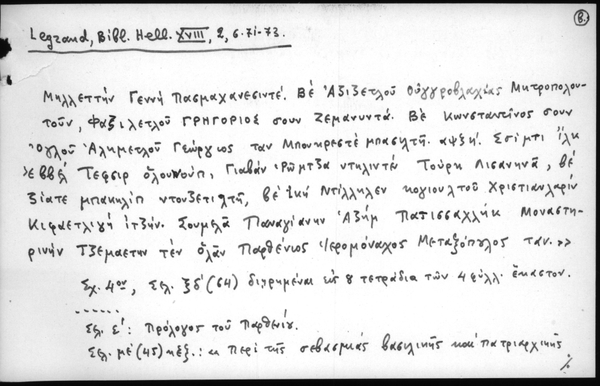 B.
Legrand, Bibl. Hell. XVIII, 2, σ. 71-73.
Μηλλεττὴν Γεννὴ Πασμαχανεσιντέ. Βὲ Ἀζιζετλοῦ Οὐγγροβλαχίας Μητροπολου-
τοῦν, Φαζιλετλοῦ ΓΡΗΓΟΡΙΟΣ σουν Ζεμανυντά. Βὲ Κωνσταντῖνος σουν
Ὀγλοῦ Ἀλημετλοῦ Γεώργιος ταν Μπουκρεστὲ μπασηλτή. αψξή. Σσίμτι ἰλκ
ἐββελ Τεφσιρ ὀλουνούπ, Γιαβάν Ῥωμτζα ντηλιντέν Τοῦρκ Λισανηνά, βὲ
ζίατε μπακηλὶπ ντουζετιλτή, βὲ ἰκὴ Ντίλληλεν κογιουλτοῦ Χριστιανλαρὶν
Κιφαετλιγὴ ἰτζήν. Σουμελᾶ Παναγίανην Ἀζὴμ Πατισσαχλὴκ Μοναστη-
ρινὴν Τζεμαετην τὲν ὀλὰν Παρθένιος Ἱερομόναχος Μεταξόπουλος ταν.»
Σχ. 4ον, Σελ. ξδ' (64) διῃρημέναι εἰς 8 τετράδια τῶν 4 φύλλ. ἕκαστον.
......
Σελ. ε': Πρόλογος τοῦ Παρθενίου.
Σελ. με' (45) κἑξ.: « Περὶ τῆς σεβασμίας βασιλικῆς καὶ πατριαρχικῆς
·/.